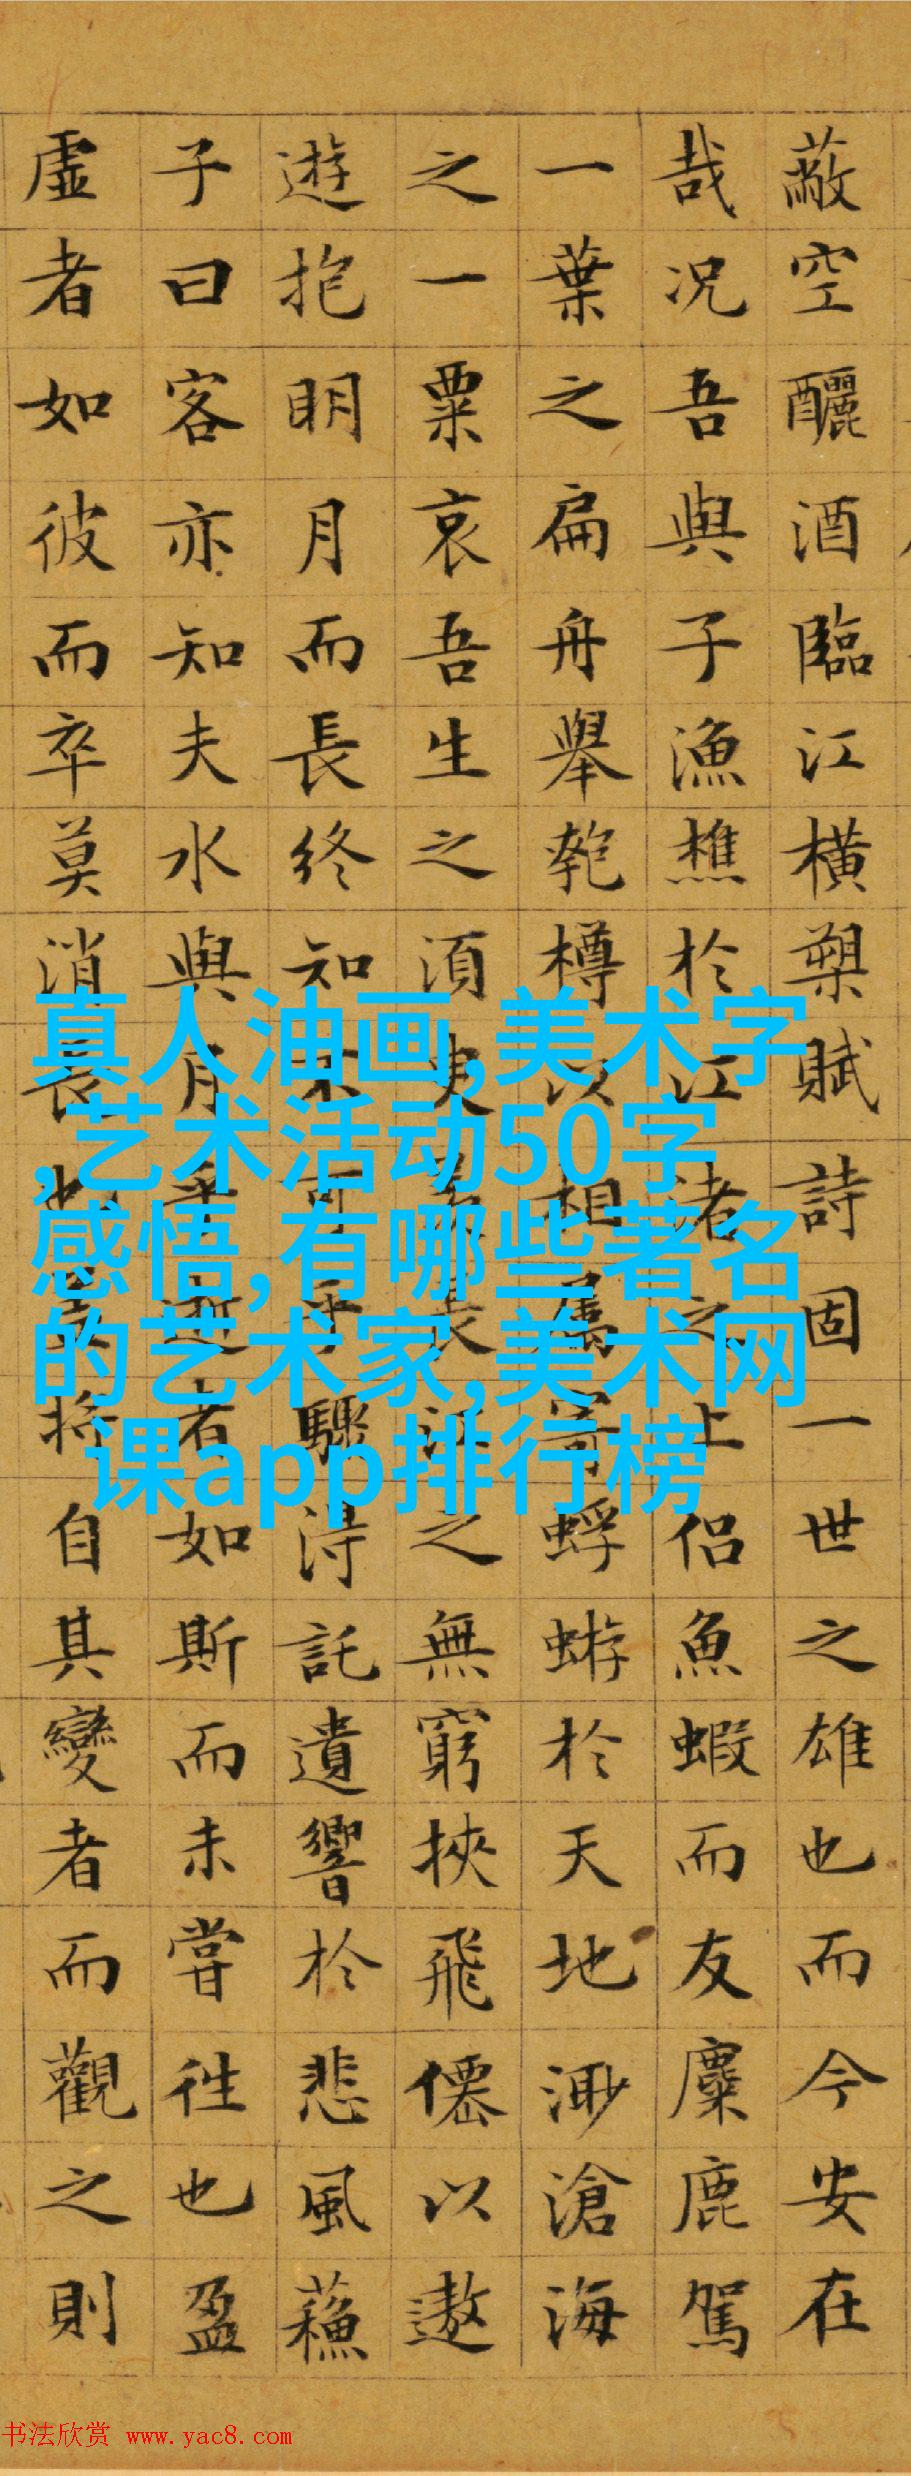 蔽空釃酒臨江橫槊賦詩固一世之雄也而今安在
哉况吾與子漁樵於江渚之上侣魚蝦而友麋鹿駕
一葉之扁舟舉匏樽以相屬寄蜉蝣於天地渺滄海
之一粟哀吾生之須臾長江之無窮挾飛僊以遨
遊抱明月而長終知不可乎驟得託遺響於悲風蘇
子曰客亦知夫水與月乎逝者如斯而未嘗往也盈
虛者如彼而卒莫消長也將自其變者而觀之則
真人油画,美术字
,艺术活动50字
感悟,有哪些著名
的艺术家,美术网
课app排行榜
书法欣赏 www.yac8.com